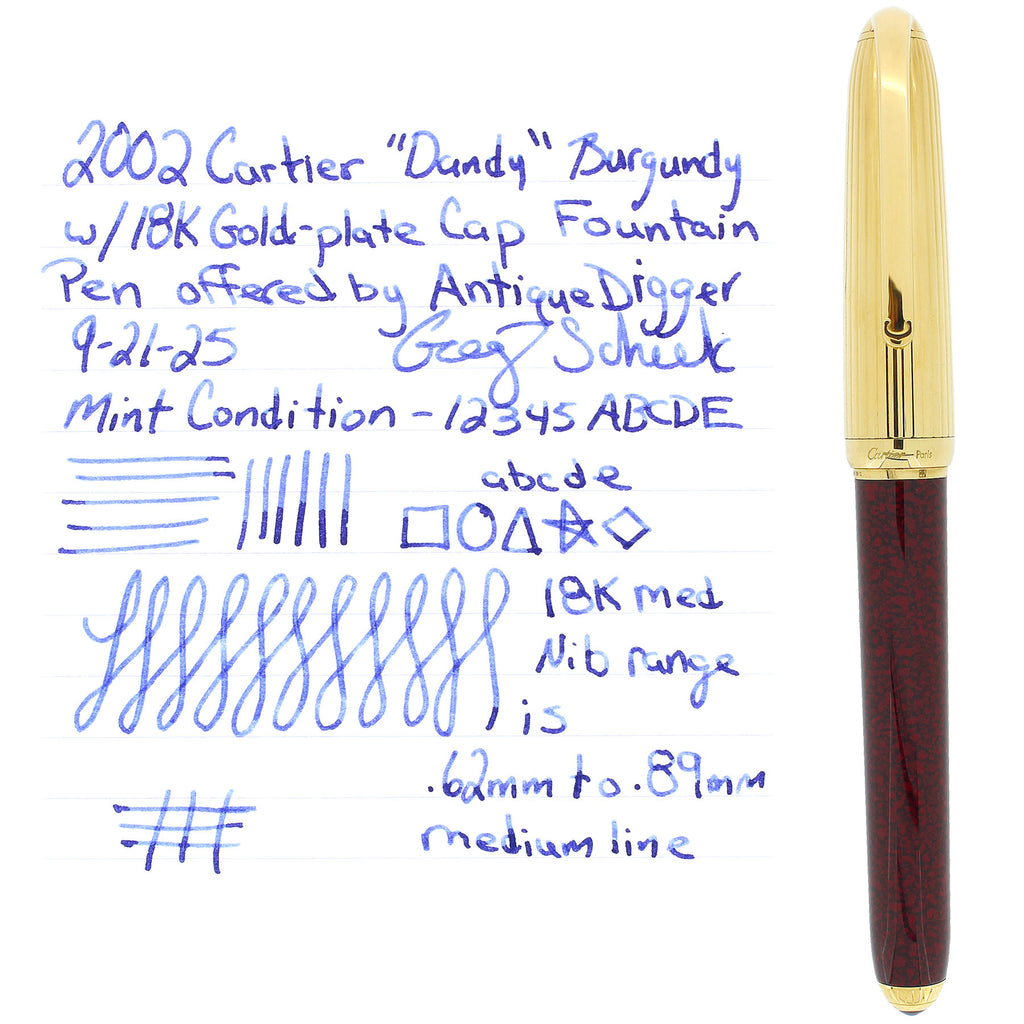 2002 Cartier "Dandy" Burgundy
w/18K Gold-plate Cap Fountain
Pen offered by AntiqueDigger
9-21-25 Greg
Mint Condition - 12345 ABCDE
abcde
18K med
Nib range
is
.62mm to .89mm
medium line
Cartier Paris